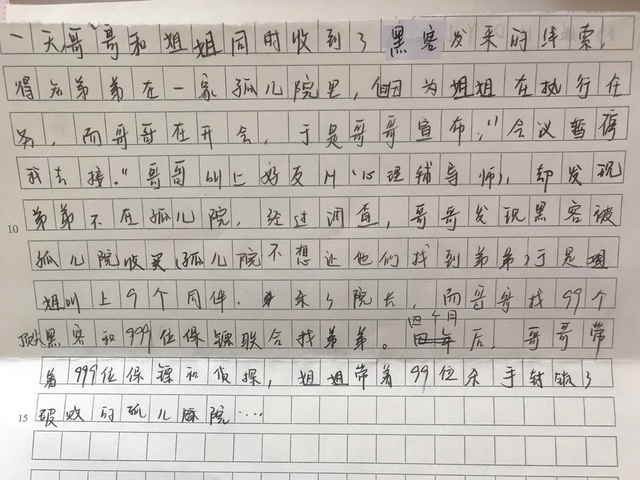 一天哥哥和姐姐同时收到了黑客发来的线索,
得知弟弟在一家孤儿院里,但因为姐姐在执行任
务,而哥哥在开会,于是哥哥宣布,"会议暂停
我去接."哥哥叫上好友M(心理辅导师),却发现
10 弟弟不在孤儿院,经过调查,哥哥发现黑客被
孤儿院收买(孤儿院不想让他们找到弟弟)于是姐
姐叫上9个同伴.杀了院长,而哥哥找99个
顶尖黑客和999位保镖联合找弟弟。四个月后,哥哥带
着999位保镖和侦探,姐姐带着99位杀手封锁了
15 破败的孤儿院....